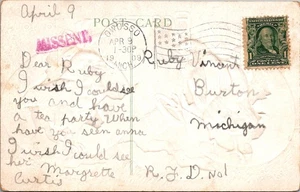 April 9
MISSENT.
POST CARD
OWOSSO
APR 9
-30P
1909
MICH.
Dear Ruby
I wish I could see
you and have
a tea party. When
have you seen anna
I wish I could see
her Margrette
Curtis
Ruby Vincent
Burton
Michigan
R.F.D. No1